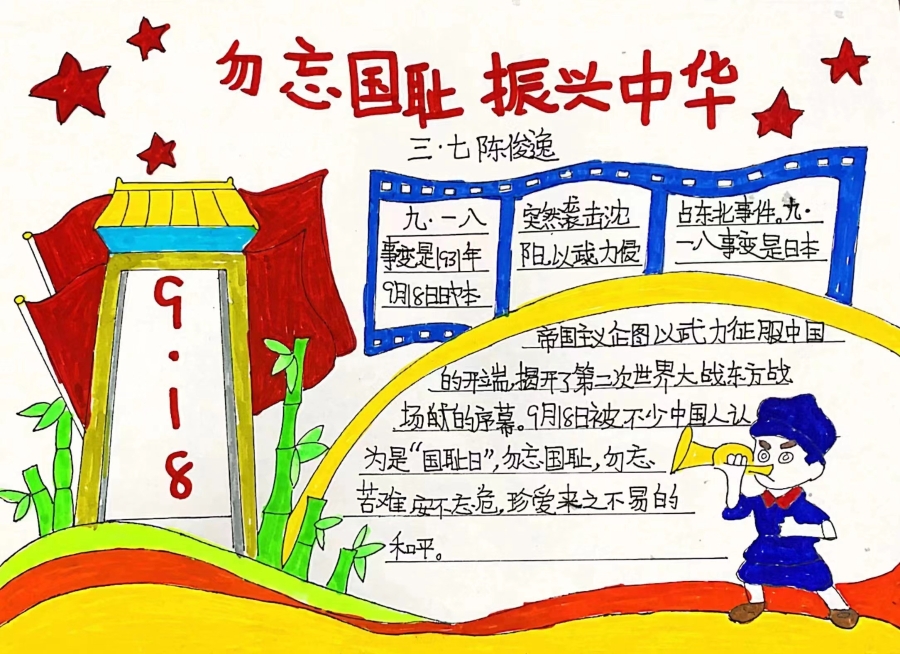 勿忘国耻 振兴中华
三·七 陈俊逸
9·18
九·一八
事变是1931年
9月18日日本
突然袭击沈
阳,以武力侵
占东北事件。九·
一八事变是日本
帝国主义企图以武力征服中国
的开端,揭开了第二次世界大战东方战
场的序幕。9月18日被不少中国人认
为是“国耻日”,勿忘国耻,勿忘
苦难,安不忘危,珍爱来之不易的
和平。